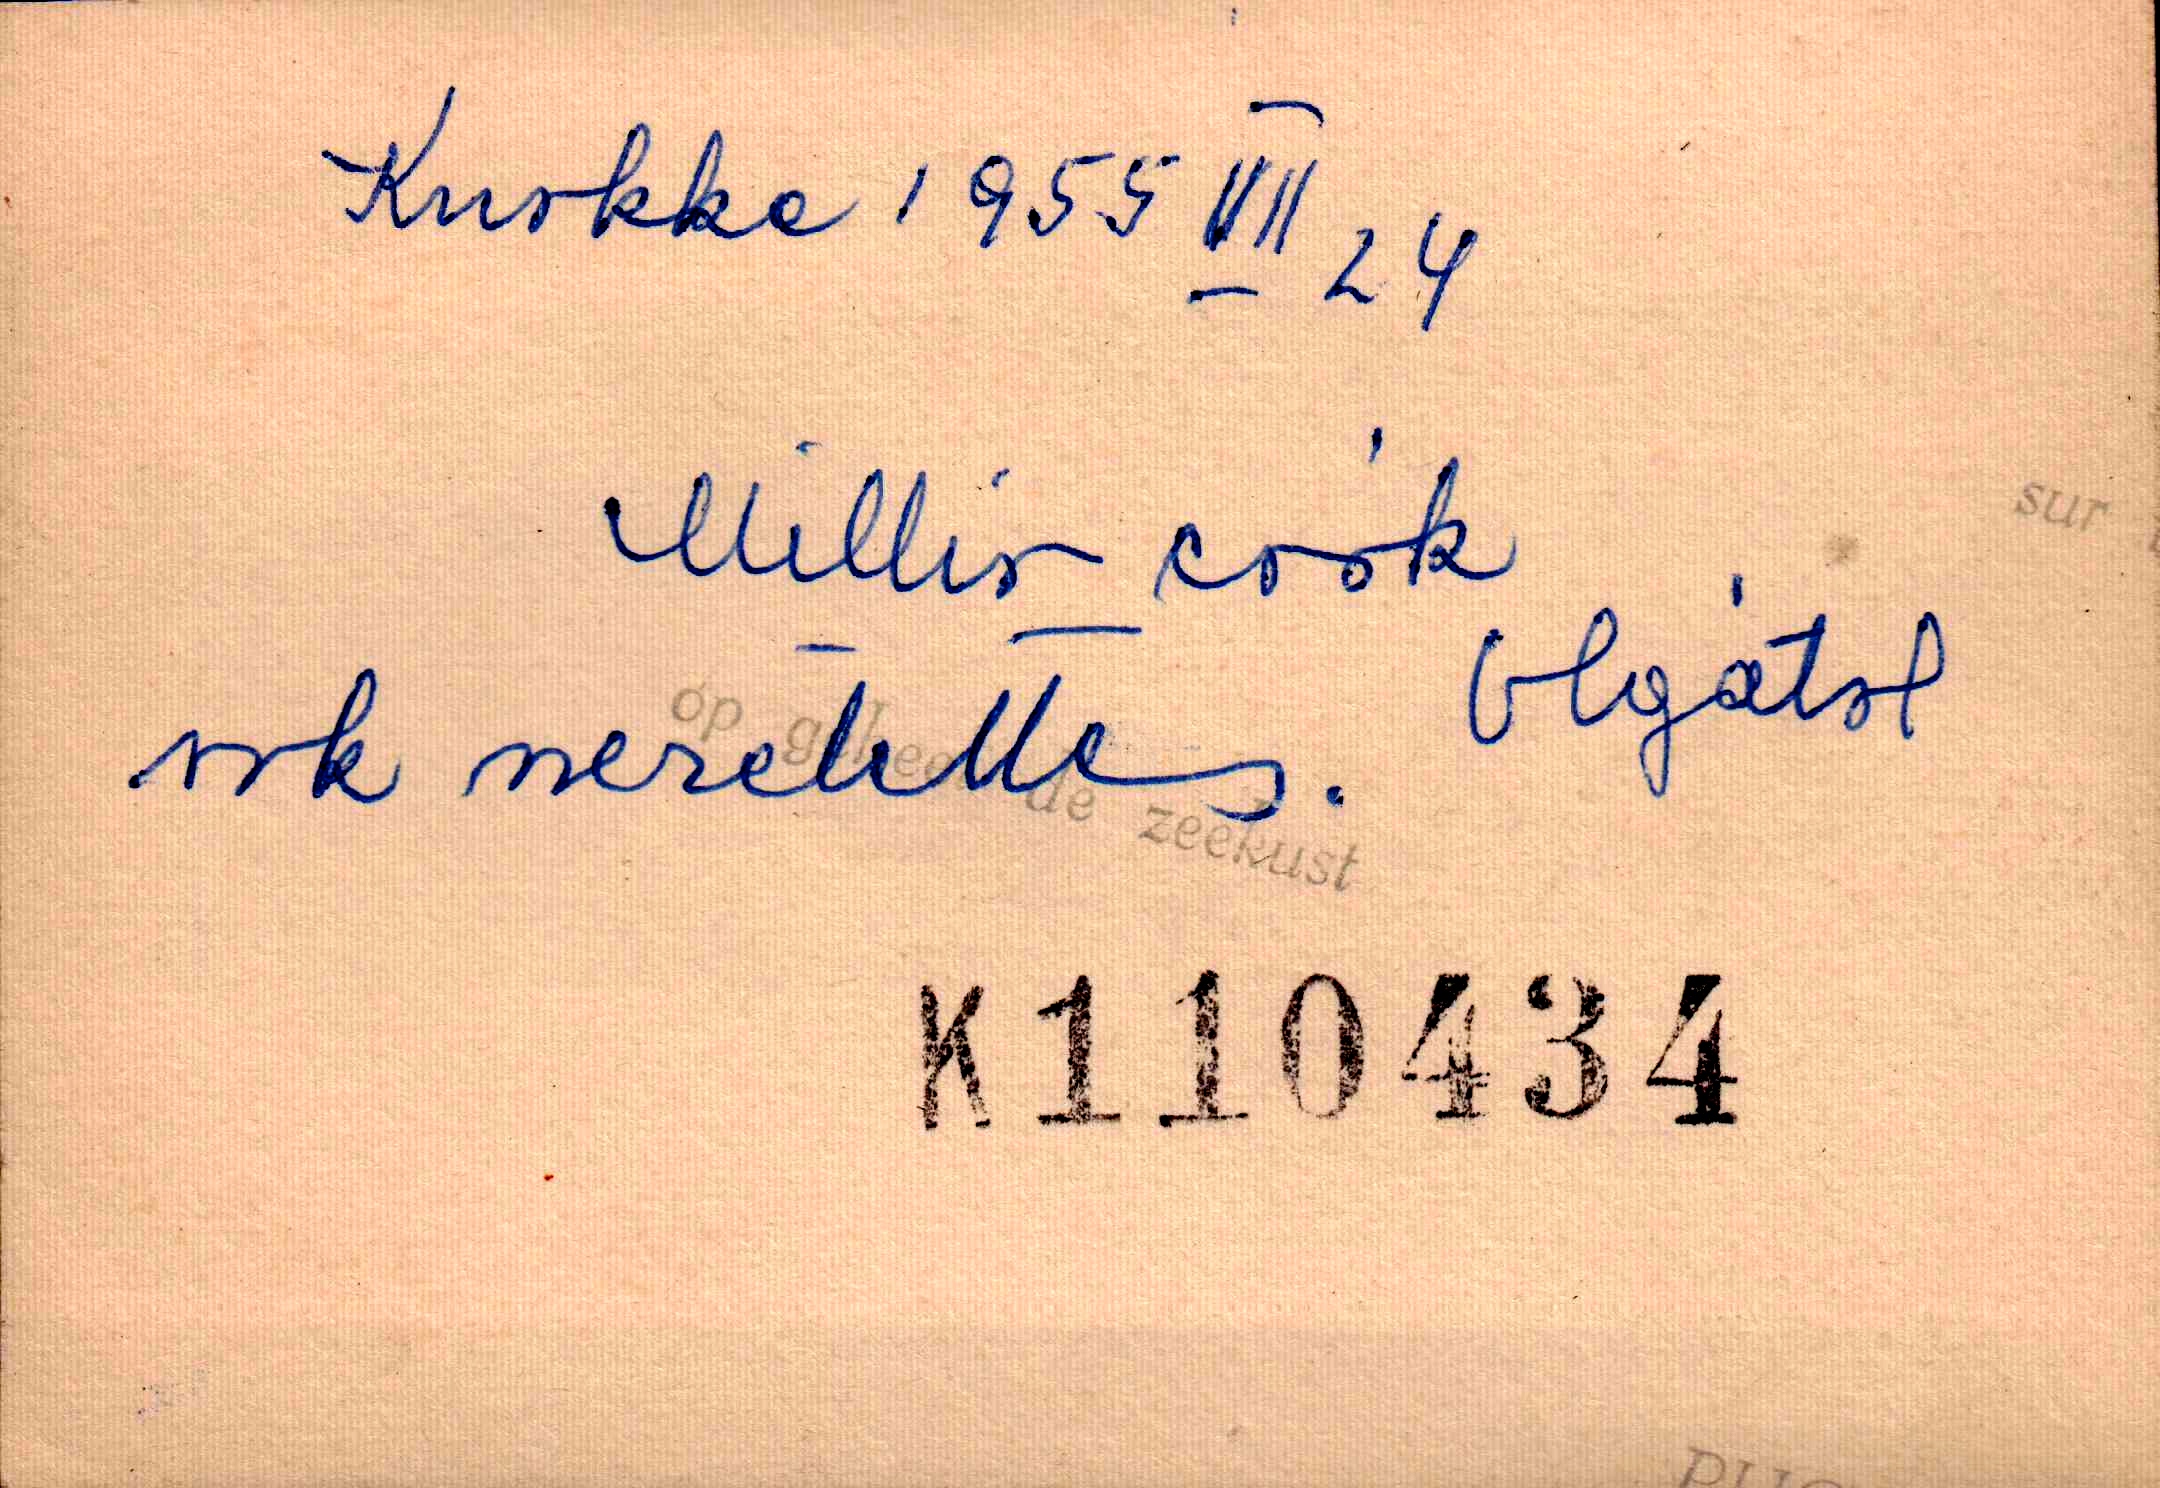 Knokke 1955 VII 24
Millió csók
sok szeretettel.
Olgától
op geheel de zeekust
sur
K110434